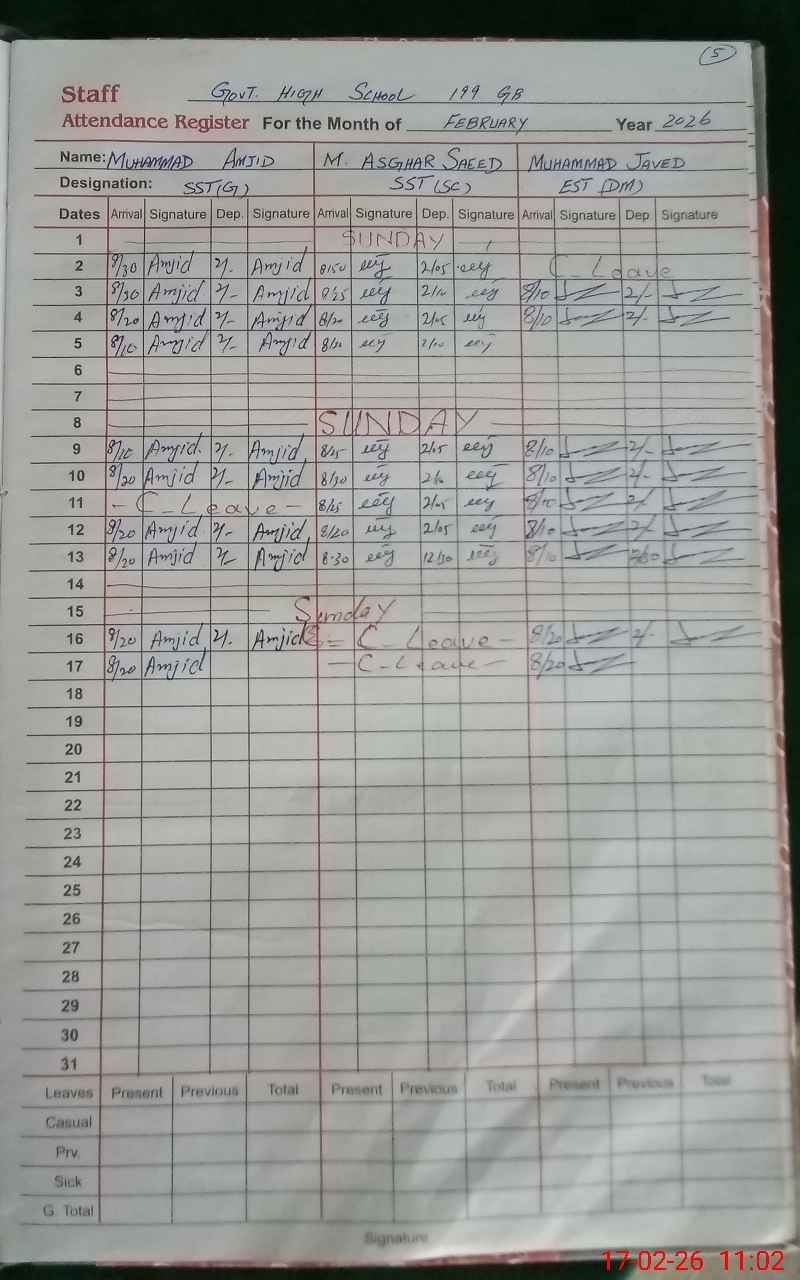 5
Staff GOVT. HIGH SCHOOL 199 GB
Attendance Register For the Month of FEBRUARY Year 2026
Name: MUHAMMAD AMJID M. ASGHAR SAEED MUHAMMAD JAVED
Designation: SST(G) SST(SC) EST (DM)
Dates Arrival Signature Dep. Signature Arrival Signature Dep. Signature Arrival Signature Dep. Signature
1 SUNDAY
2 8/30 Amjid 2/- Amjid 8/50 2/05 C-Leave
3 8/30 Amjid 2/- Amjid 8/25 2/10 8/10 2/-
4 8/20 Amjid 2/- Amjid 8/20 2/05 8/10 2/-
5 8/10 Amjid 2/- Amjid
6
7
8 SUNDAY
9 8/10 Amjid 2/- Amjid 8/25 2/05 8/10 2/-
10 8/20 Amjid 2/- Amjid 8/30 8/10 2/-
11 - C-Leave - 8/25 2/05 8/10 2/
12 8/20 Amjid 2/- Amjid 8/20 2/05 8/10 2/
13 8/20 Amjid 2/- Amjid 8-30 12/30 8/10
14
15 Sunday
16 8/20 Amjid 2/- Amjid C-Leave - 8/20 2/-
17 8/20 Amjid - C-Leave - 8/20
18
19
20
21
22
23
24
25
26
27
28
29
30
31
Leaves Present Previous Total Present Previous Total Present Previous Total
Casual
Prv.
Sick
G. Total
Signature
17-02-26 11:02